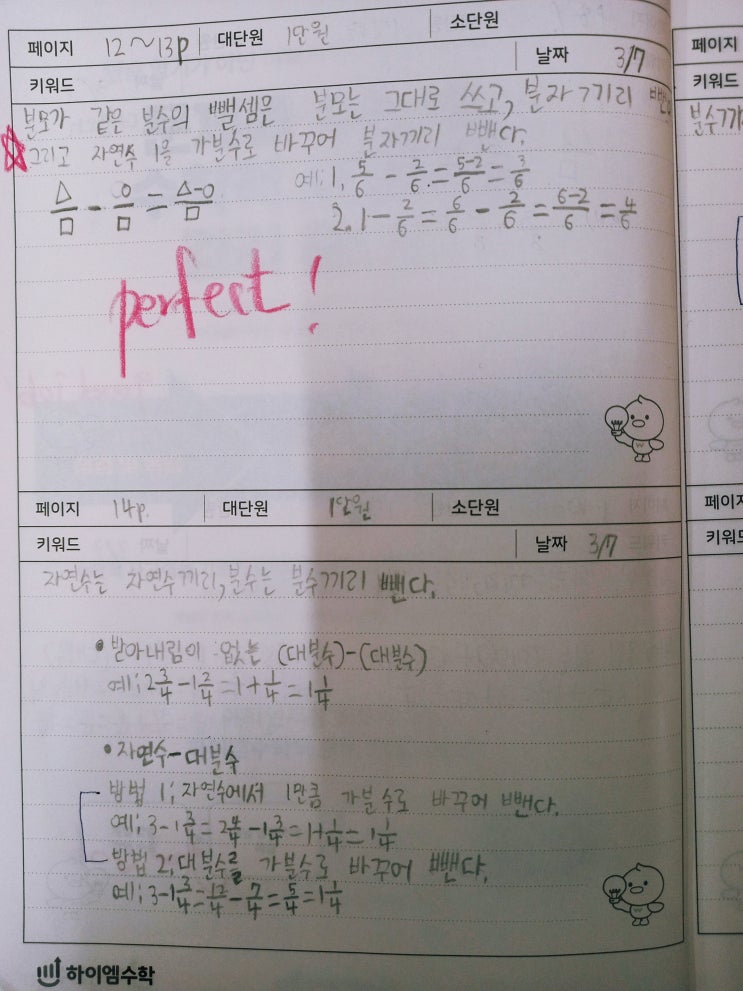 페이지 12~13p 대단원 1단원 소단원
키워드 날짜 3/7
분모가 같은 분수의 뺄셈은 분모는 그대로 쓰고, 분자끼리
☆그리고 자연수 1을 가분수로 바꾸어 분자끼리 뺀다.
△/□ - ○/□ = △-○/□ 예: 1. 5/6 - 2/6 = 5-2/6 = 3/6
2. 1 - 2/6 = 6/6 - 2/6 = 6-2/6 = 4/6
perfect!
페이지 14p. 대단원 1단원 소단원
키워드 날짜 3/7
자연수는 자연수끼리, 분수는 분수끼리 뺀다.
• 받아내림이 없는 (대분수)-(대분수)
예; 2 3/4 - 1 2/4 = 1 + 1/4 = 1 1/4
• 자연수-대분수
방법 1; 자연수에서 1만큼 가분수로 바꾸어 뺀다.
예; 3 - 1 3/4 = 2 4/4 - 1 3/4 = 1 + 1/4 = 1 1/4
방법 2; 대분수를 가분수로 바꾸어 뺀다.
예; 3 - 1 3/4 = 12/4 - 7/4 = 5/4 = 1 1/4
하이엠수학
페이지
키워드
분수가
페이지
키워드